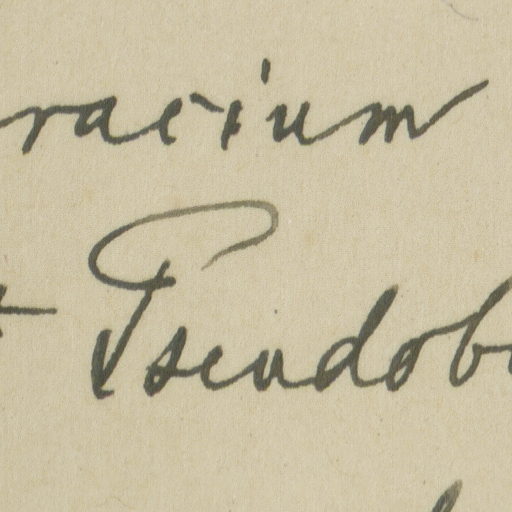 racium
Pseudob